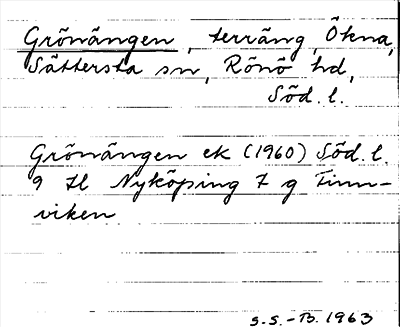 Grönängen, terräng, Ökna,
Sättersta sn, Rönö hd,
Söd. l.
Grönängen ek (1960) Söd. l.
9 H Nyköping 7 g Finn-
viken
S.S.-B. 1963